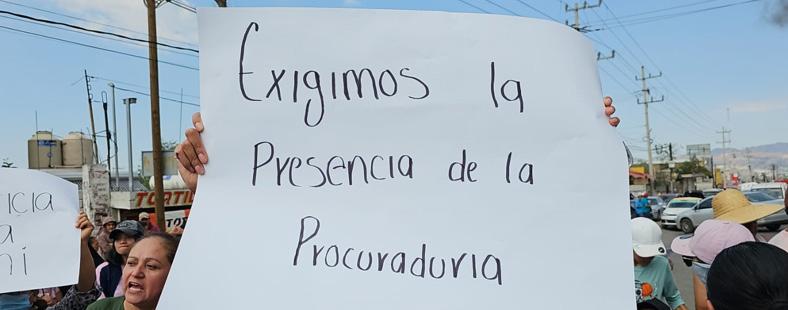 Exigimos la
Presencia de la
Procuraduria
icia
a
ni
TORTIL